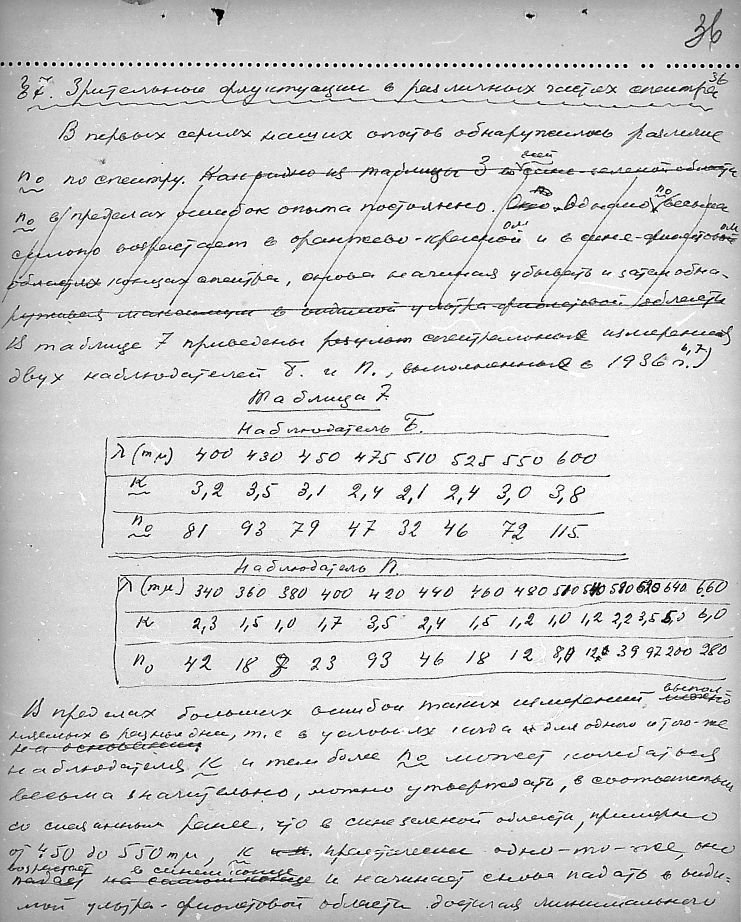 36
36
§ 7. Зрительные флуктуации в различных частях спектра
В первых сериях наших опытов обнаружилось различие
n₀ по спектру. Как видно из таблицы 3 в всей сине-зеленой области
n₀ в пределах ошибок опыта постоянно. Обычно n₀ весьма
сильно возрастает в оранжево-красной и в сине-фиолетовой
областях концах спектра, снова начиная убывать и затем обна-
руживая максимум в видимой ультра-фиолетовой области
В таблице 7 приведены результ спектральные измерения
двух наблюдателей Б. и П., выполненные в 1936 г. 6,7)
Таблица 7
Наблюдатель Б.
λ (mμ) 400 430 450 475 510 525 550 600
K 3,2 3,5 3,1 2,4 2,1 2,4 3,0 3,8
n₀ 81 93 79 47 32 46 72 115
Наблюдатель П.
λ (mμ) 340 360 380 400 420 440 460 480 510 540 580 620 640 660
K 2,3 1,5 1,0 1,7 3,5 2,4 1,5 1,2 1,0 1,2 2,2 3,5 5,0 6,0
n₀ 42 18 23 93 46 18 12 39 92 200 280
В пределах больших ошибок таких измерений, выпол-
няемых в разные дни, т.е в условиях когда для одного и того-же
на основании
наблюдателя K и тем более n₀ может колебаться
весьма значительно, можно утверждать, в соответствии
со сказанным ранее, что в синезеленой области, примерно
от 450 до 550 mμ, K практически одно-то-же, оно
возрастает в синем конце
падает на самом конце и начинает снова падать в види-
мой ультра-фиолетовой области достигая минимального